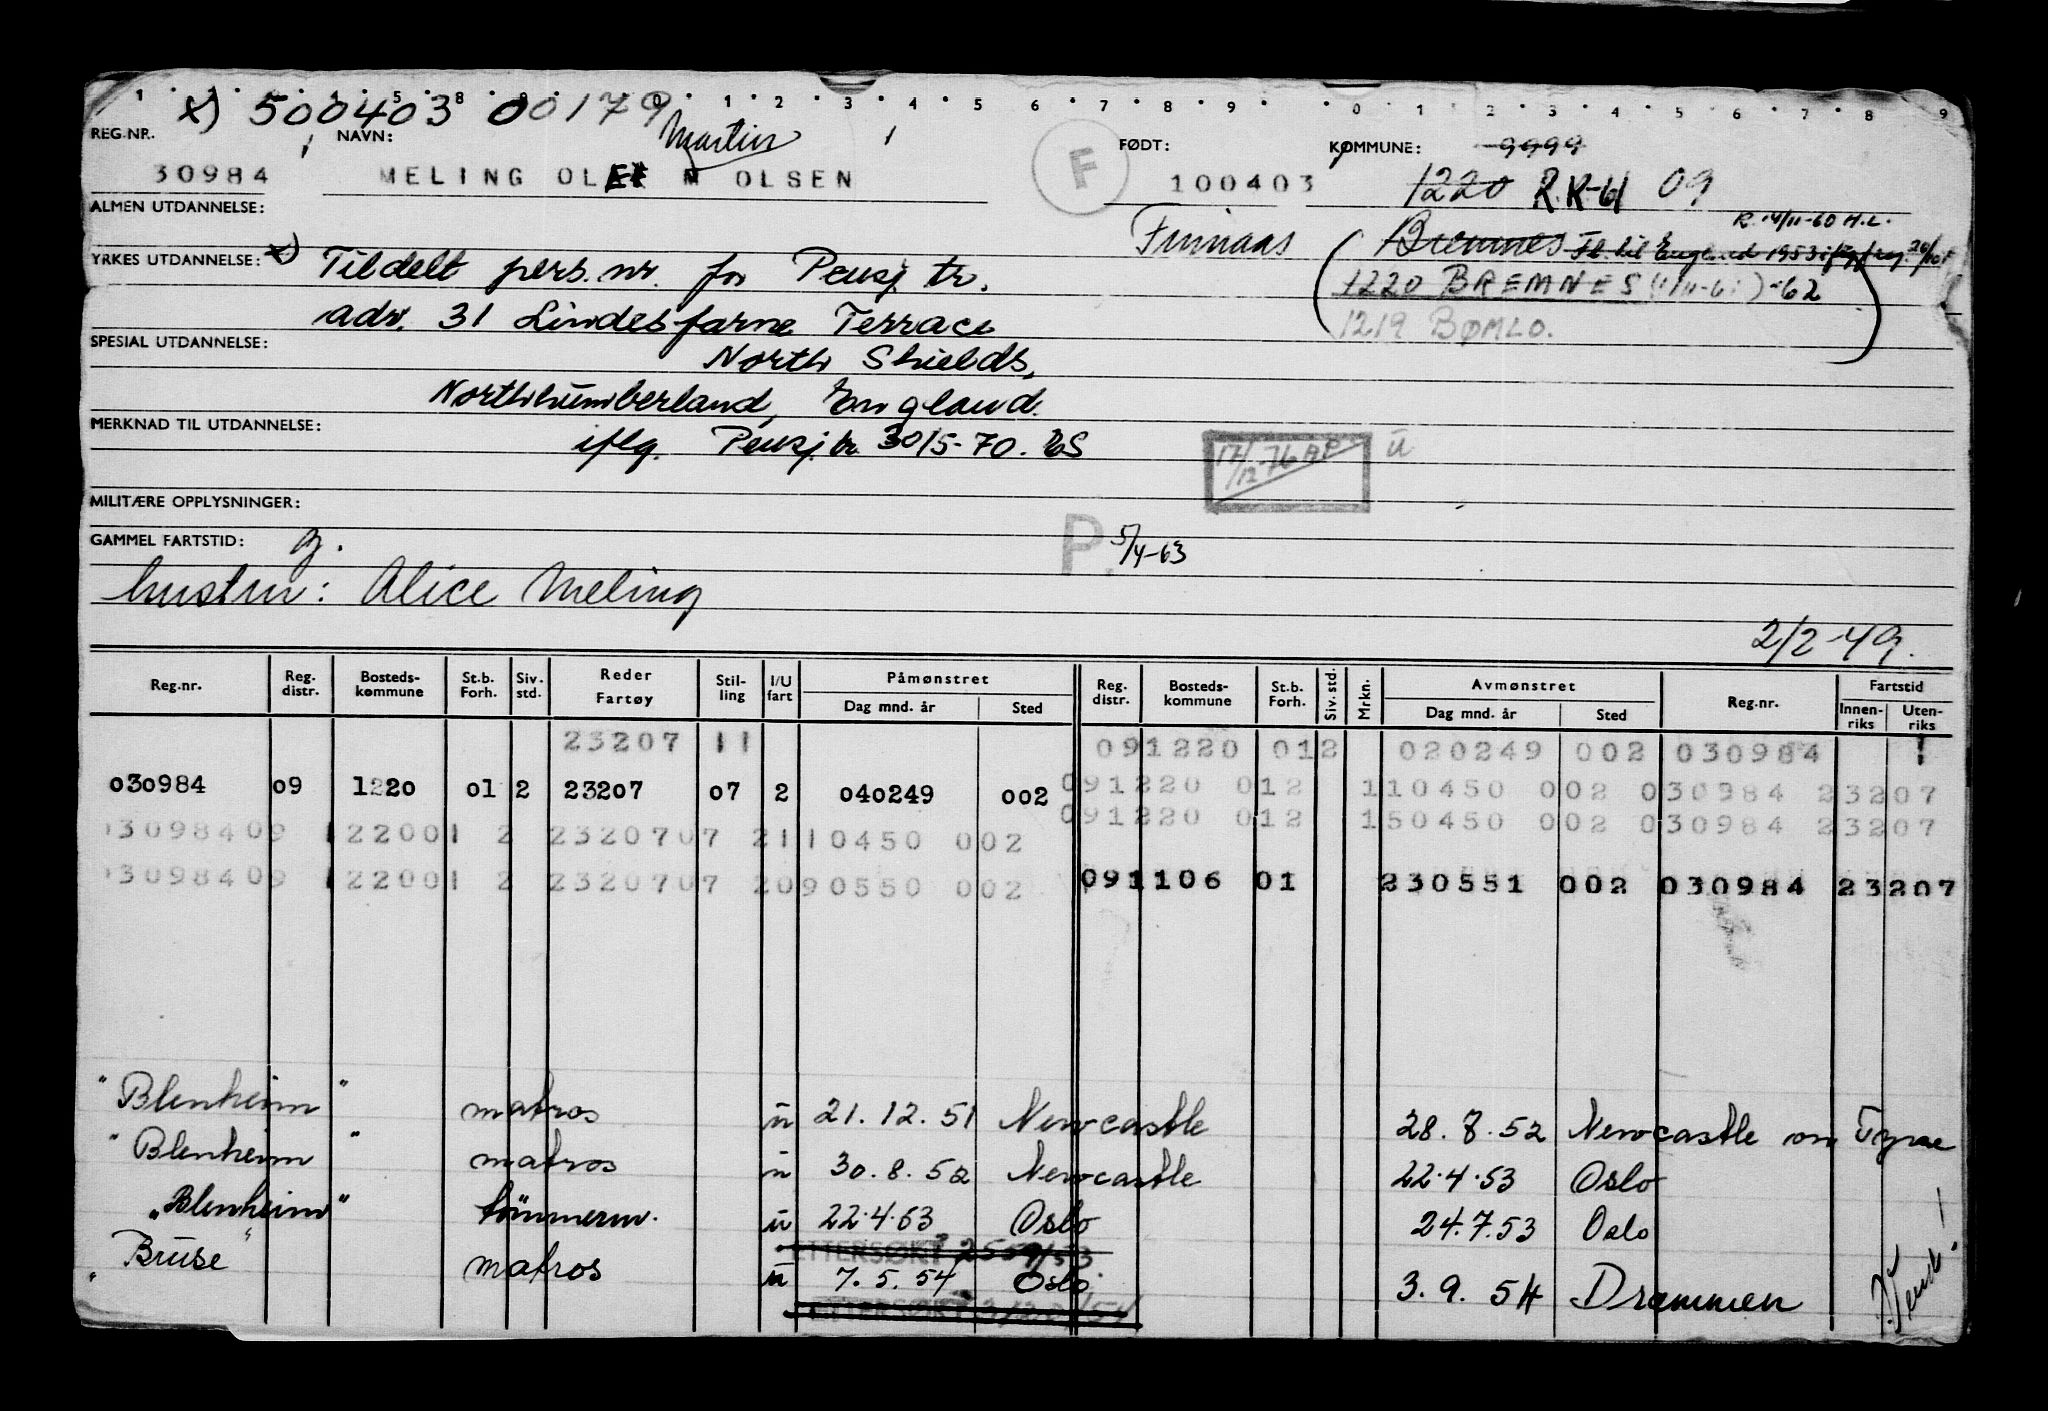 1 2 3 4 5 6 7 8 9 0 1 2 3 4 5 6 7 8 9
x) 500403 00179
REG.NR. NAVN: Martin FØDT: KOMMUNE: 9999
30984 MELING OLAF M OLSEN F 100403 1220 R.K-61 09
ALMEN UTDANNELSE: Finnaas Bremnes Fl. til England 1953 R. 14/11-60 H.L.
YRKES UTDANNELSE: x) Tildelt pers.nr. for Pensj. tr. 1220 BREMNES (1/11-61)-62
adr. 31 Lindesfarne Terrace 1219 BØMLO.
SPESIAL UTDANNELSE:
North Shields,
Northhumberland, England.
MERKNAD TIL UTDANNELSE:
iflg. Pensj.tr 30/5-70. ES 17/12-76 AP ü
MILITÆRE OPPLYSNINGER:
GAMMEL FARTSTID: g. P. 5/4-63
hustru: Alice Meling
2/2-49.
Reg.nr. Reg. distr. Bosteds- kommune St.b. Forh. Siv. std. Reder Fartøy Stil- ling I/U fart Påmønstret Dag mnd. år Sted Reg. distr. Bosteds- kommune St.b. Forh. Siv. std. Mrkn. Avmønstret Dag mnd. år Sted Reg.nr. Fartstid Innen- riks Uten- riks
23207 11 091220 012 020249 002 030984 1
030984 09 1220 01 2 23207 07 2 040249 002 091220 012 110450 002 030984 23207
091220 012 150450 002 030984 23207
030984 09 1220 01 2 23207 07 2 110450 002
030984 09 1220 01 2 23207 07 2 090550 002 091106 01 230551 002 030984 23207
"Blenheim" matros ü 21.12.51 Newcastle 28.8.52 Newcastle on Tyne
"Blenheim" matros ü 30.8.52 Newcastle 22.4.53 Oslo
"Blenheim" tömmerm. ü 22.4.53 Oslo 24.7.53 Oslo
ETTERSØKT 25 9/53
"Bruse" matros ü 7.5.54 Oslo 3.9.54 Drammen
ETTERSØKT